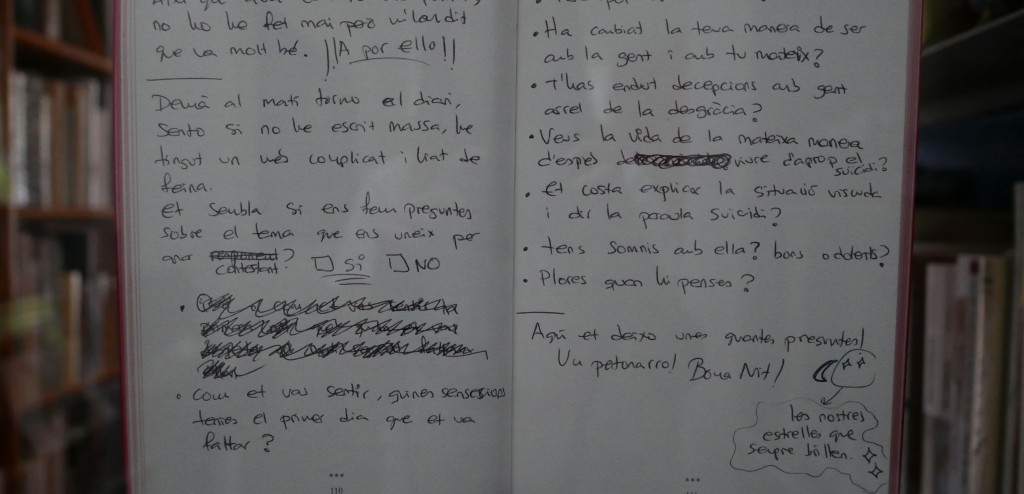 no ho he fet mai però m'han dit
que va molt bé. ¡¡A por ello!!
Demà al matí torno el diari,
sento si no he escrit massa, he
tingut un mes complicat i liat de
feina.
Et sembla si ens fem preguntes
sobre el tema que ens uneix per
anar contestant? □ Sí □ NO
• Com et vas sentir, quines sensacions
tenies el primer dia que et va
faltar?
...
110
• Ha canviat la teva manera de ser
amb la gent i amb tu mateix?
• T'has endut decepcions amb gent
arrel de la desgràcia?
• Veus la vida de la mateixa manera
d'espés viure d'aprop el
suicidi?
• Et costa explicar la situació viscuda
i dir la paraula suicidi?
• Tens somnis amb ella? bons o dolents?
• Plores quan hi penses?
Aquí et deixo unes quantes preguntes!
Un petonarro! Bona Nit!
les nostres
estrelles que
sempre brillen.
...